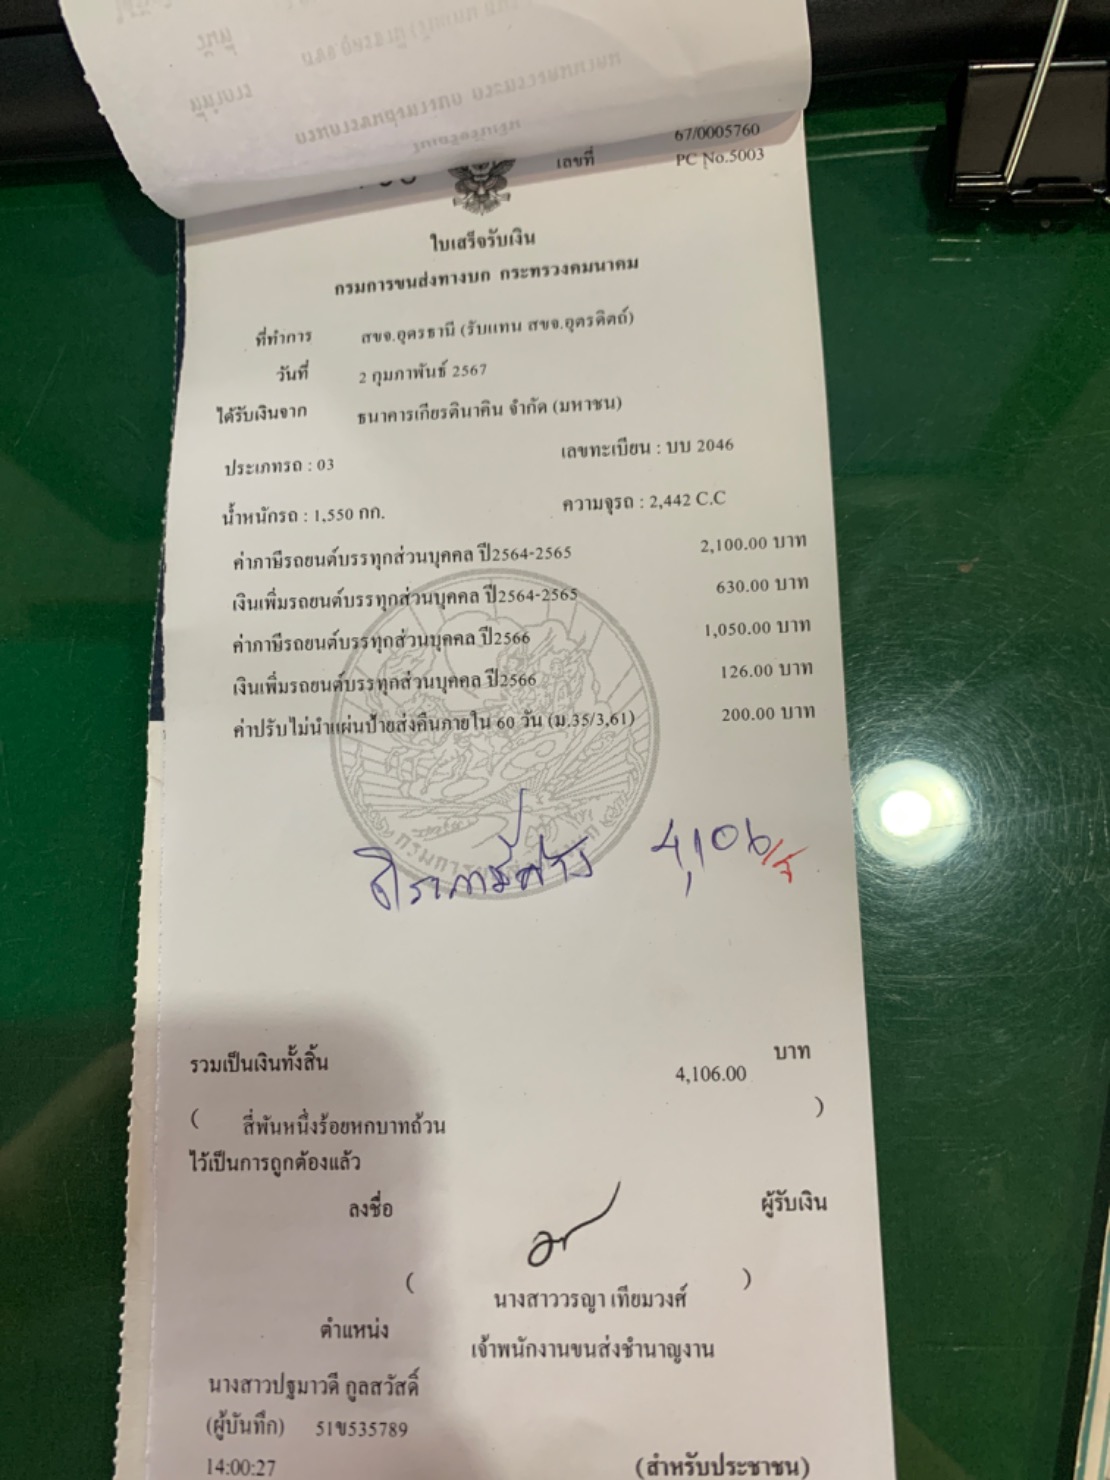 67/0005760
เลขที่ PC No.5003
ใบเสร็จรับเงิน
กรมการขนส่งทางบก กระทรวงคมนาคม
ที่ทำการ สขจ.อุดรธานี (รับแทน สขจ.อุตรดิตถ์)
วันที่ 2 กุมภาพันธ์ 2567
ได้รับเงินจาก ธนาคารเกียรตินาคิน จำกัด (มหาชน)
ประเภทรถ : 03 เลขทะเบียน : บบ 2046
น้ำหนักรถ : 1,550 กก. ความจุรถ : 2,442 C.C
ค่าภาษีรถยนต์บรรทุกส่วนบุคคล ปี2564-2565 2,100.00 บาท
เงินเพิ่มรถยนต์บรรทุกส่วนบุคคล ปี2564-2565 630.00 บาท
ค่าภาษีรถยนต์บรรทุกส่วนบุคคล ปี2566 1,050.00 บาท
เงินเพิ่มรถยนต์บรรทุกส่วนบุคคล ปี2566 126.00 บาท
ค่าปรับไม่นำแผ่นป้ายส่งคืนภายใน 60 วัน (ม.35/3,61) 200.00 บาท
4,106
รวมเป็นเงินทั้งสิ้น 4,106.00 บาท
( สี่พันหนึ่งร้อยหกบาทถ้วน )
ไว้เป็นการถูกต้องแล้ว
ลงชื่อ ผู้รับเงิน
( นางสาววรญา เทียมวงศ์ )
ตำแหน่ง เจ้าพนักงานขนส่งชำนาญงาน
นางสาวปฐมาวดี กูลสวัสดิ์
(ผู้บันทึก) 51ข535789
14:00:27 (สำหรับประชาชน)